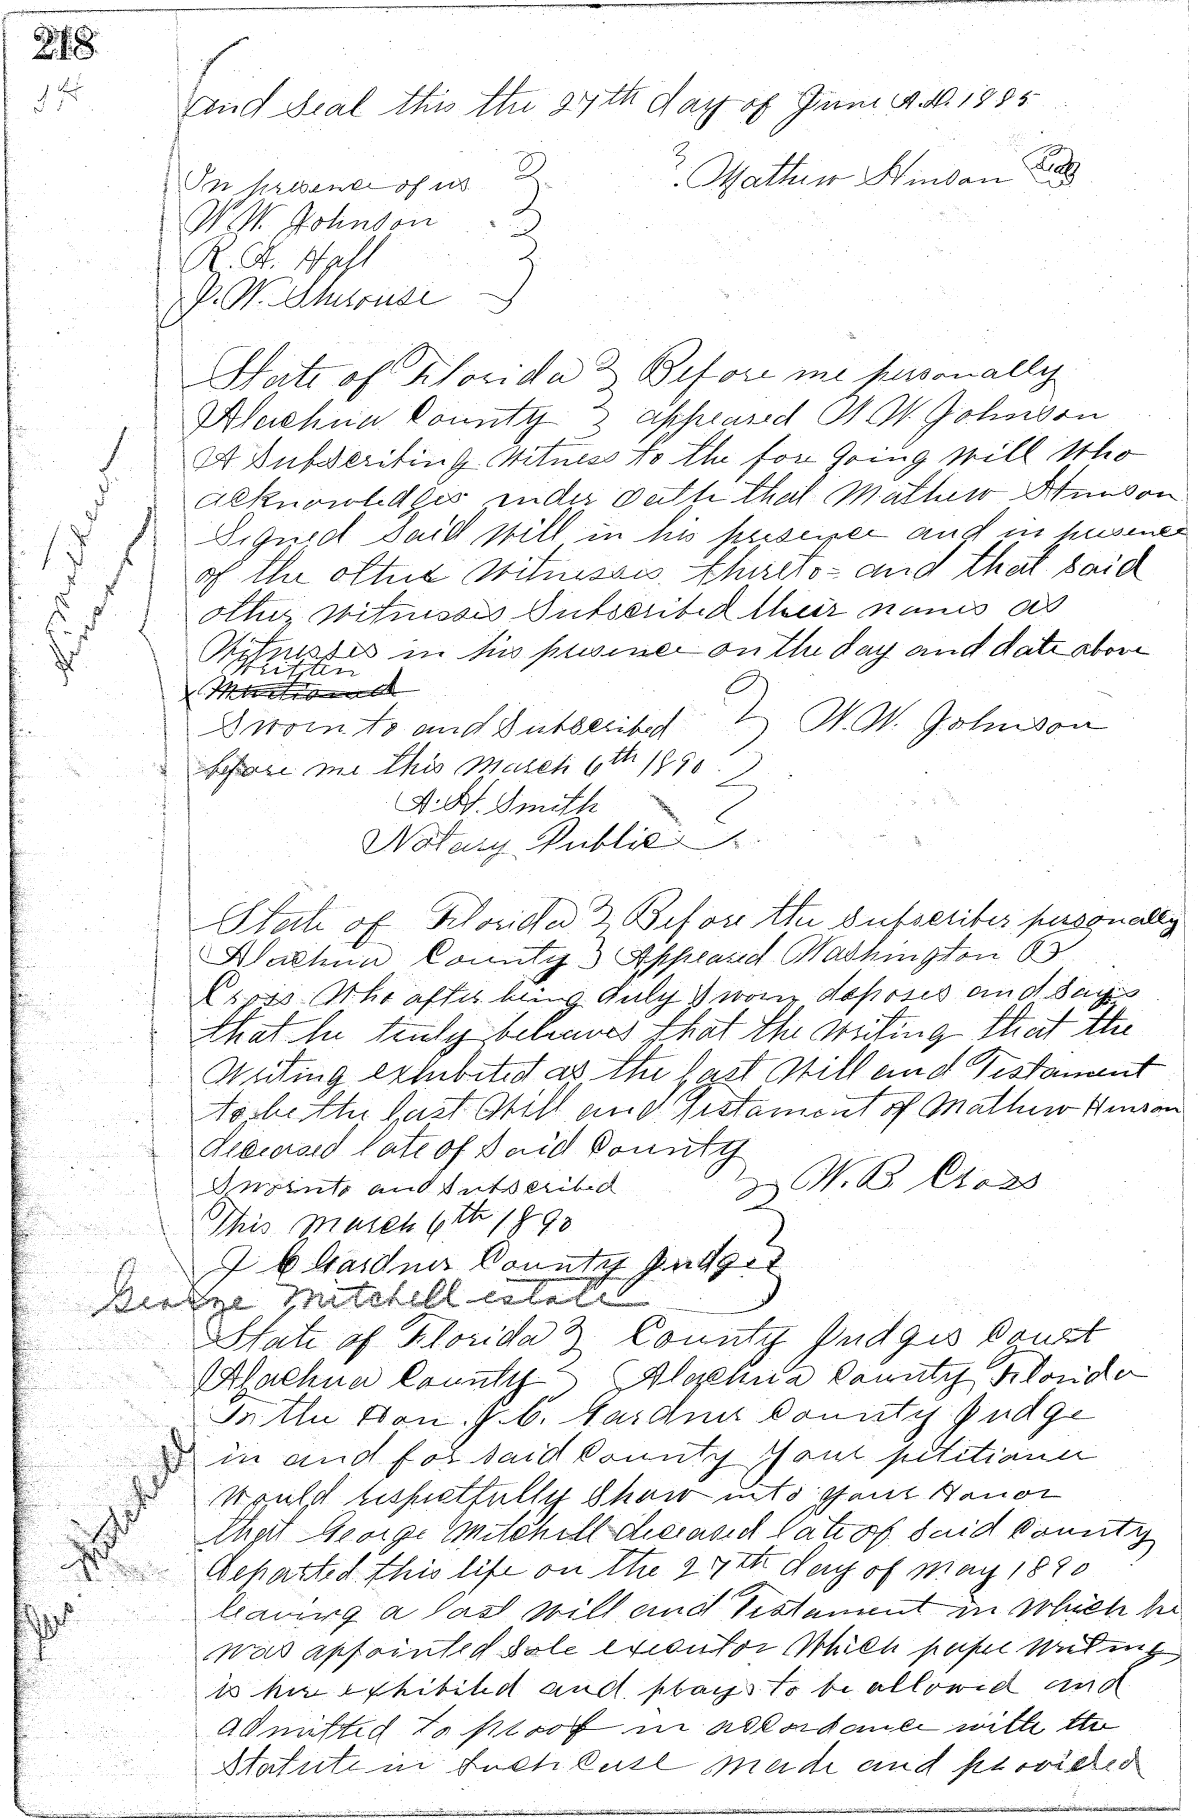 218
and Seal this the 27th day of June A.D. 1885
In presence of us
Mathew Hinson Seal
W. W. Johnson
R. A. Hall
J. W. Shrouse
State of Florida } Before me personally
Alachua County } appeared W. W. Johnson
A Subscribing Witness to the fore Going Will Who
acknowledges under Oath that Mathew Hinson
Signed Said Will in his presence and in presence
of the other Witnesses thereto = and that said
other witnesses Subscribed their names as
Witnesses in his presence on the day and date above
Written
Mentioned
Sworn to and Subscribed } W. W. Johnson
before me this March 6th 1890
A. H. Smith
Notary Public
State of Florida } Before the Subscriber personally
Alachua County } Appeared Washington B
Cross Who after being duly Sworn deposes and Says
that he truly believes that the writing that the
Writing exhibited as the Last Will and Testament
to be the Last Will and Testament of Mathew Hinson
deceased late of Said County
Sworn to and Subscribed } W. B. Cross
This March 6th 1890
J C Gardner County Judge
George Mitchell estate
State of Florida } County Judges Court
Alachua County } Alachua County Florida
To the Hon. J. C. Gardner County Judge
in and for said County Your petitioner
Would respectfully Show unto your Honor
that George Mitchell deceased late of Said County
departed this life on the 27th day of May 1890
leaving a last Will and Testament in which he
was appointed Sole executor Which paper writing
is here exhibited and prays to be allowed and
admitted to proof in accordance with the
Statute in Such Case made and provided
Mathew
Hinson
Geo. Mitchell